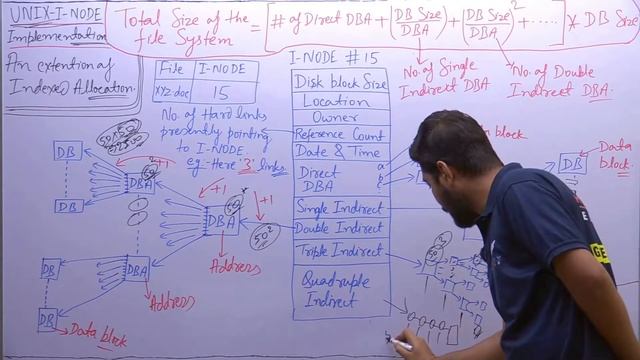 UNIX-I-NODE
Implementation
An extention of
Indexed Allocation.
Total Size of the file System = [# of Direct DBA + (DB Size/DBA) + (DB Size/DBA)² + .....] * DB Size
No. of Single
Indirect DBA
No. of Double
Indirect DBA.
File | I-NODE
XYZ.doc | 15
No. of Hard links
presently pointing
to I-NODE.
eg.- Here '3' links
I-NODE #15
Disk block Size
Location
Owner
Reference Count
Date & Time
Direct DBA
a
b
c
Single Indirect
Double Indirect
Triple Indirect
Quadruple
Indirect
DB
DB
DBA
+1
50²
DBA
+1
+1
50²
Address
DB
DB
DBA
Address
Data block
block
DB
Data
block.